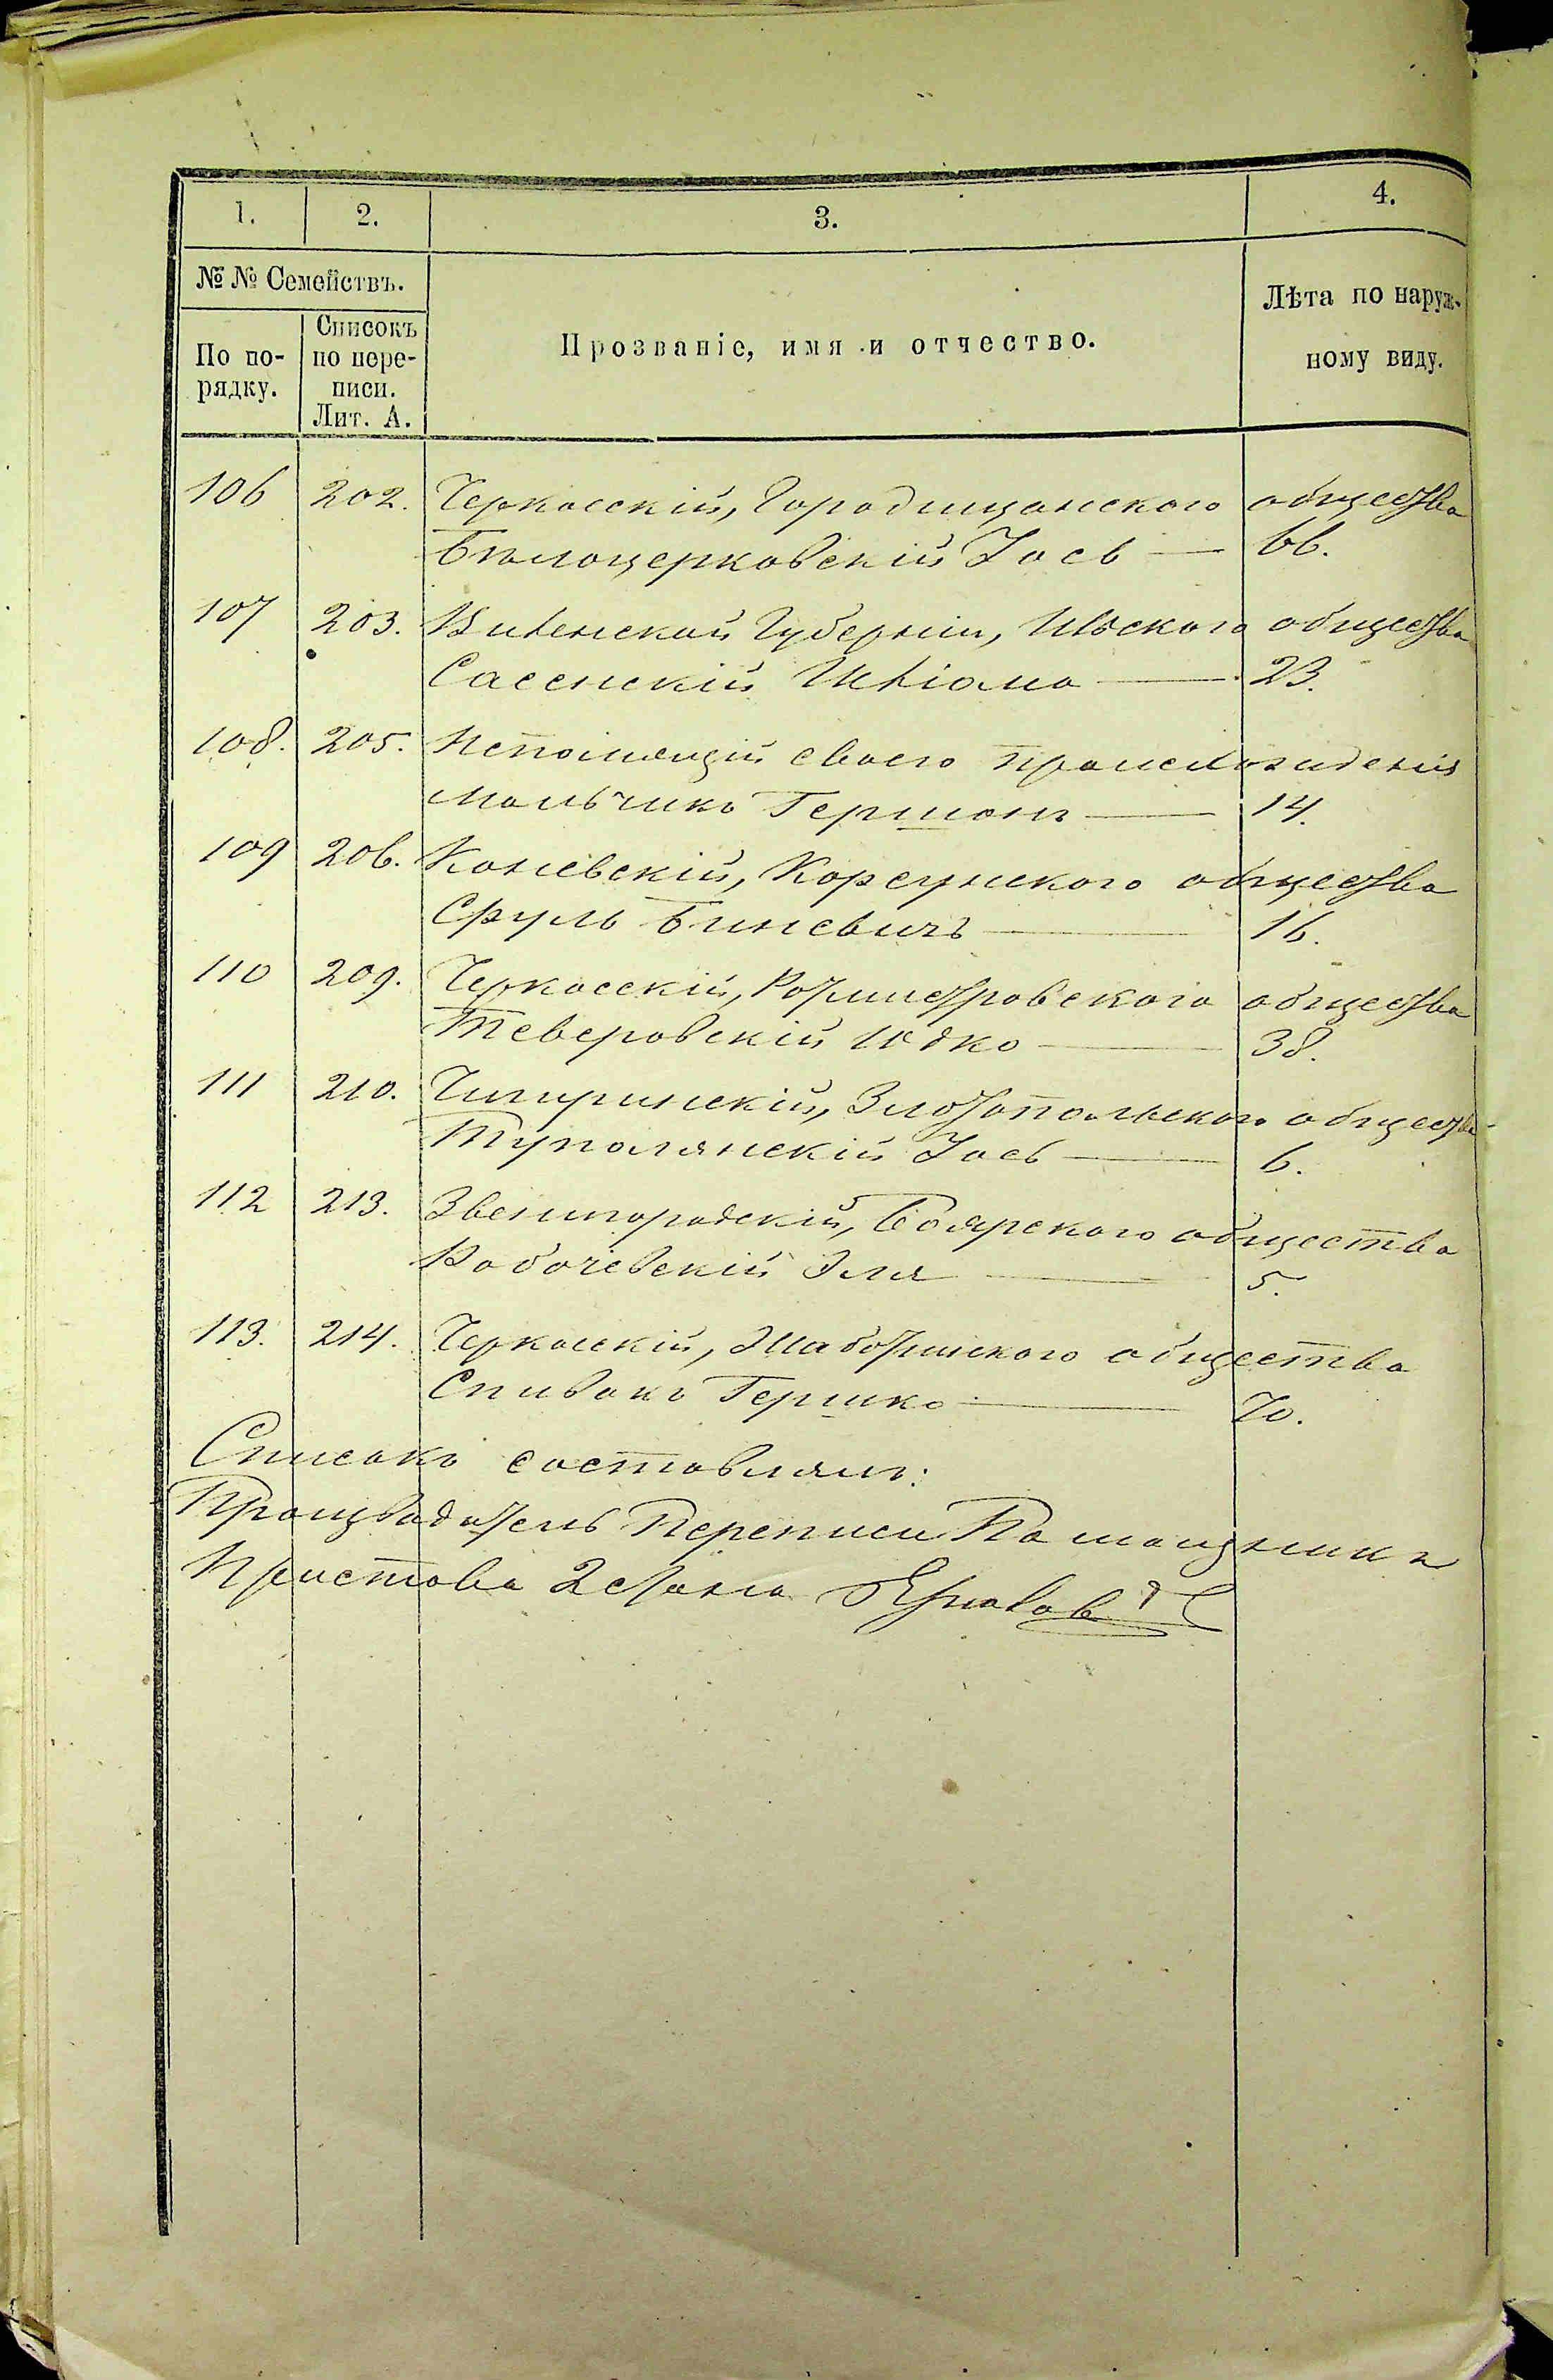 1. 2. 3. 4.
№ № Семействъ.
По по-
рядку.
Списокъ
по пере-
писи.
Лит. А.
Прозваніе, имя и отчество.
Лѣта по наруж-
ному виду.
106 202. Черкасскій, Городищанского общества
Бѣлоцерковскій Іось — 66.
107 203. Виленской Губерніи, общества
Сасенскій — 23.
108. 205. Непомнящій своего происхожденія
Мальчикъ Гершонъ — 14.
109 206. Каневскій, Корсунского общества
Сруль Биневичъ — 16.
110 209. Черкасскій, Ротмистровского общества
Теверовскій Юдко — 38.
111 210. Чигиринскій, Златопольского общества
Туполянскій Іось — 6.
112 213. Звенигородскій, Боярского общества
Рабочевскій Эля — 5.
113. 214. Черкасскій, Шаботинского общества
Спивакъ Гершко — 70.
Списокъ составлялъ:
Производитель Переписи Помощникъ
Пристава 2 стана